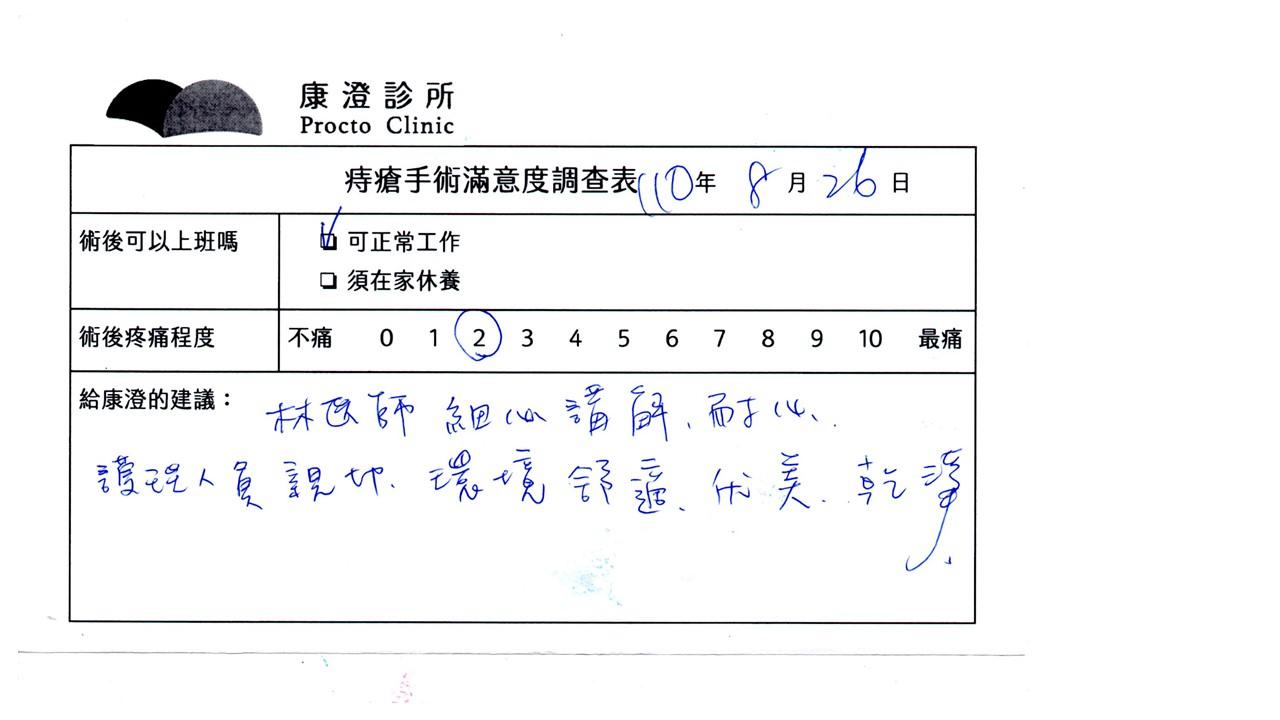 康澄診所
Procto Clinic
痔瘡手術滿意度調查表 110年 8月26日
術後可以上班嗎
可正常工作
須在家休養
術後疼痛程度 不痛 0 1 2 3 4 5 6 7 8 9 10 最痛
給康澄的建議：林医師 細心講解、耐心、
護理人員親切、環境舒適、优美、乾淨.